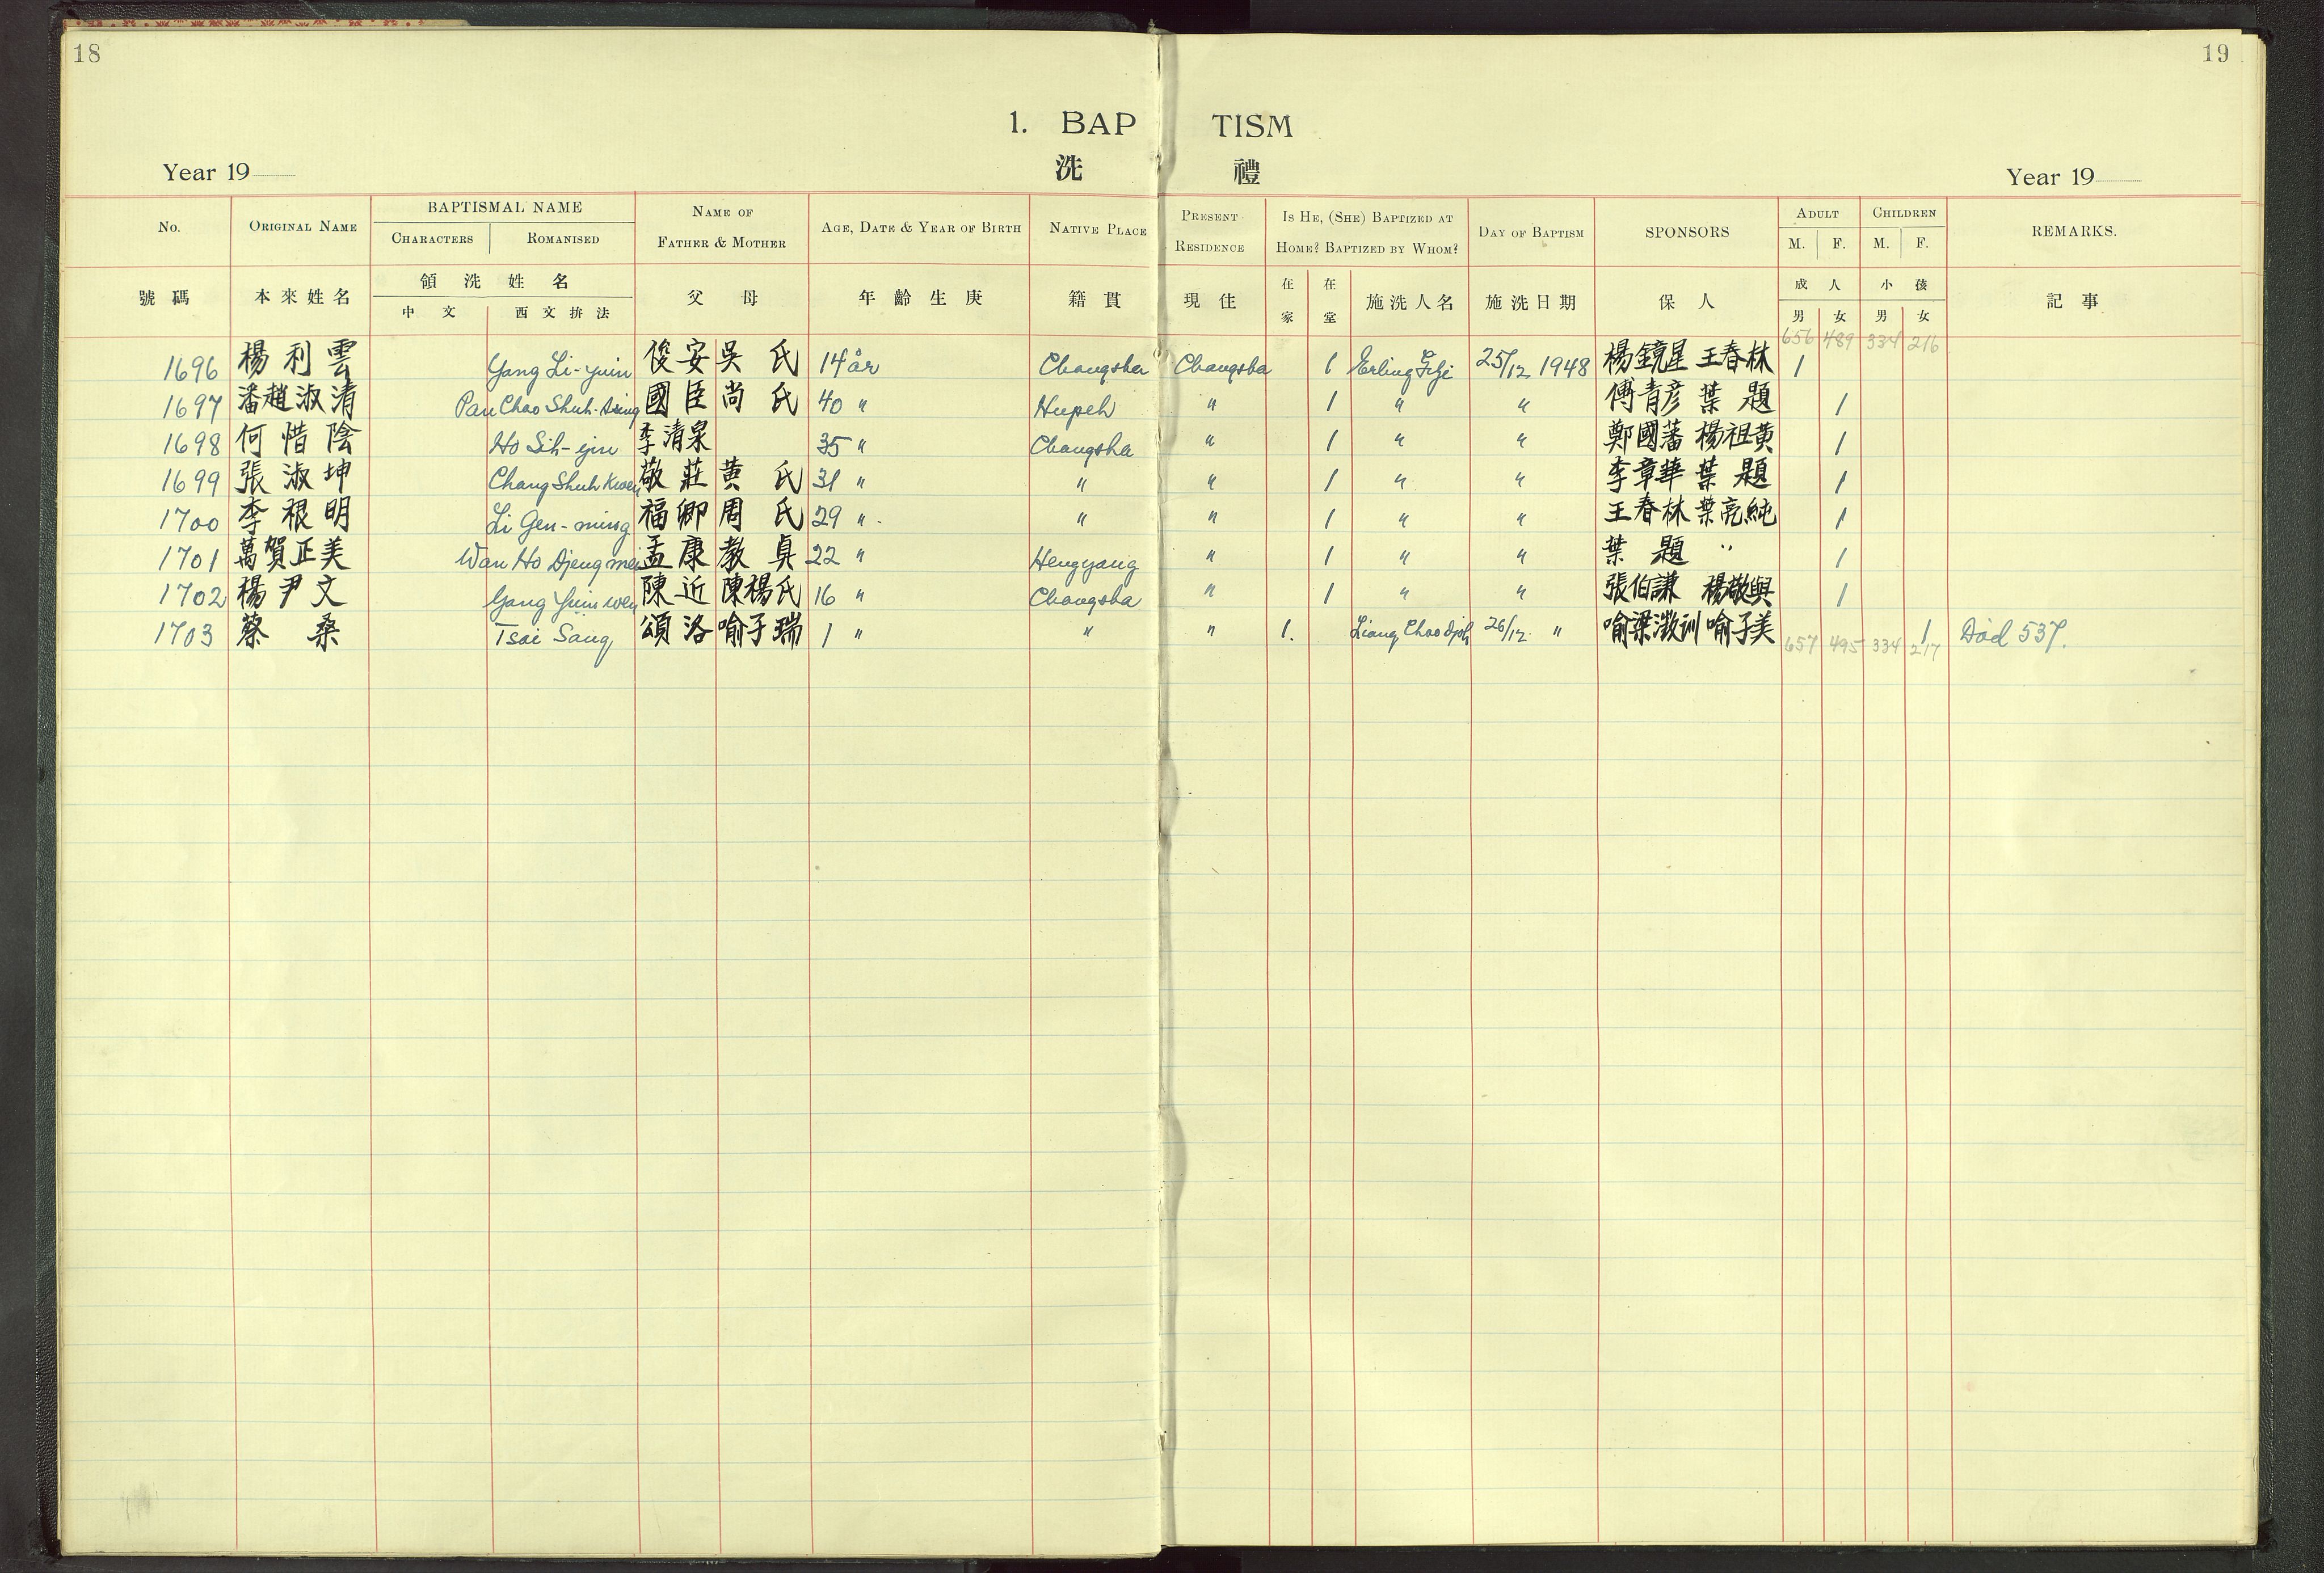 18
19
1. BAP TISM
洗 禮
Year 19
Year 19
No. ORIGINAL NAME BAPTISMAL NAME CHARACTERS ROMANISED NAME OF FATHER & MOTHER AGE, DATE & YEAR OF BIRTH NATIVE PLACE PRESENT RESIDENCE IS HE, (SHE) BAPTIZED AT HOME? BAPTIZED BY WHOM? DAY OF BAPTISM SPONSORS ADULT M. F. CHILDREN M. F. REMARKS.
號碼 本來姓名 領洗姓名 中文 西文拚法 父母 年齡生庚 籍貫 現住 在家 在堂 施洗人名 施洗日期 保人 成人 男 女 小孩 男 女 記事
656 489 334 216
1696 楊利雲 Yang Li-yuin 俊安 吳氏 14 år Changsha Changsha 1 Erling 25/12 1948 楊鏡星 王春林 1
1697 潘趙淑清 Pan Chao Shuh-tsing 國臣 尚氏 40 " Hupeh " 1 " " 傅青彦 葉題 1
1698 何惜陰 Ho Sih-yin 李清泉 35 " Changsha " 1 " " 鄭國藩 楊祖黄 1
1699 張淑坤 Chang Shuh Kwen 敬莊 黄氏 31 " " " 1 " " 李章華 葉題 1
1700 李根明 Li Gen-ming 福卿 周氏 29 " " " 1 " " 王春林 葉亮純 1
1701 萬賀正美 Wan Ho Djeng mei 孟康 教貞 22 " Hengyang " 1 " " 葉題 " 1
1702 楊尹文 Yang Yuin wen 陳近 陳楊氏 16 " Changsha " 1 " " 張伯謙 楊敬與 1
1703 蔡桑 Tsai Sang 頌洛 喻子瑞 1 " " " 1. Liang Chao djoh 26/12 " 喻梁澂訓 喻子美 1 Död 537.
657 495 334 217